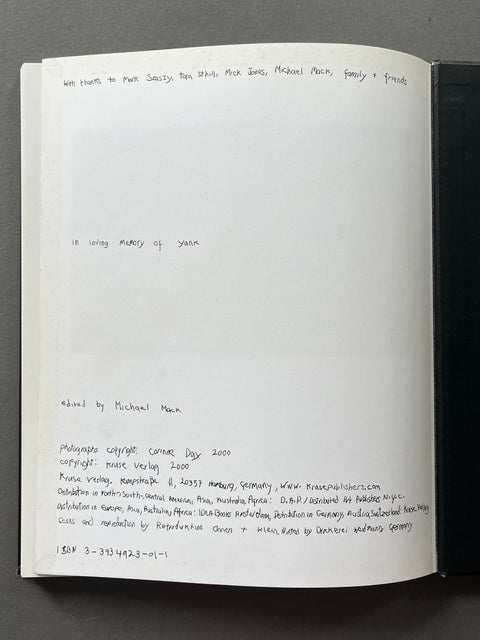 With thanks to Mark Szaszy, Tara St Hill, Mick Jones, Michael Mack, family + friends
In loving memory of Yank
edited by Michael Mack
photographs copyright: Corinne Day 2000
copyright: Kruse Verlag 2000
Kruse Verlag, Kampstraße 11, 20357 Hamburg, Germany, www.krusepublishers.com
Distribution in North-, South-, Central America, Asia, Australia, Africa: D.A.P./Distributed Art Publishers N.Y.C.
Distribution in Europe, Asia, Australia, Africa: IDEA Books Amsterdam, Distribution in Germany, Austria, Switzerland: Kruse Verlag
Scans and reproduction by Reproduktion Onnen + Klein, Printed by Druckerei Germany
ISBN 3-934923-01-1